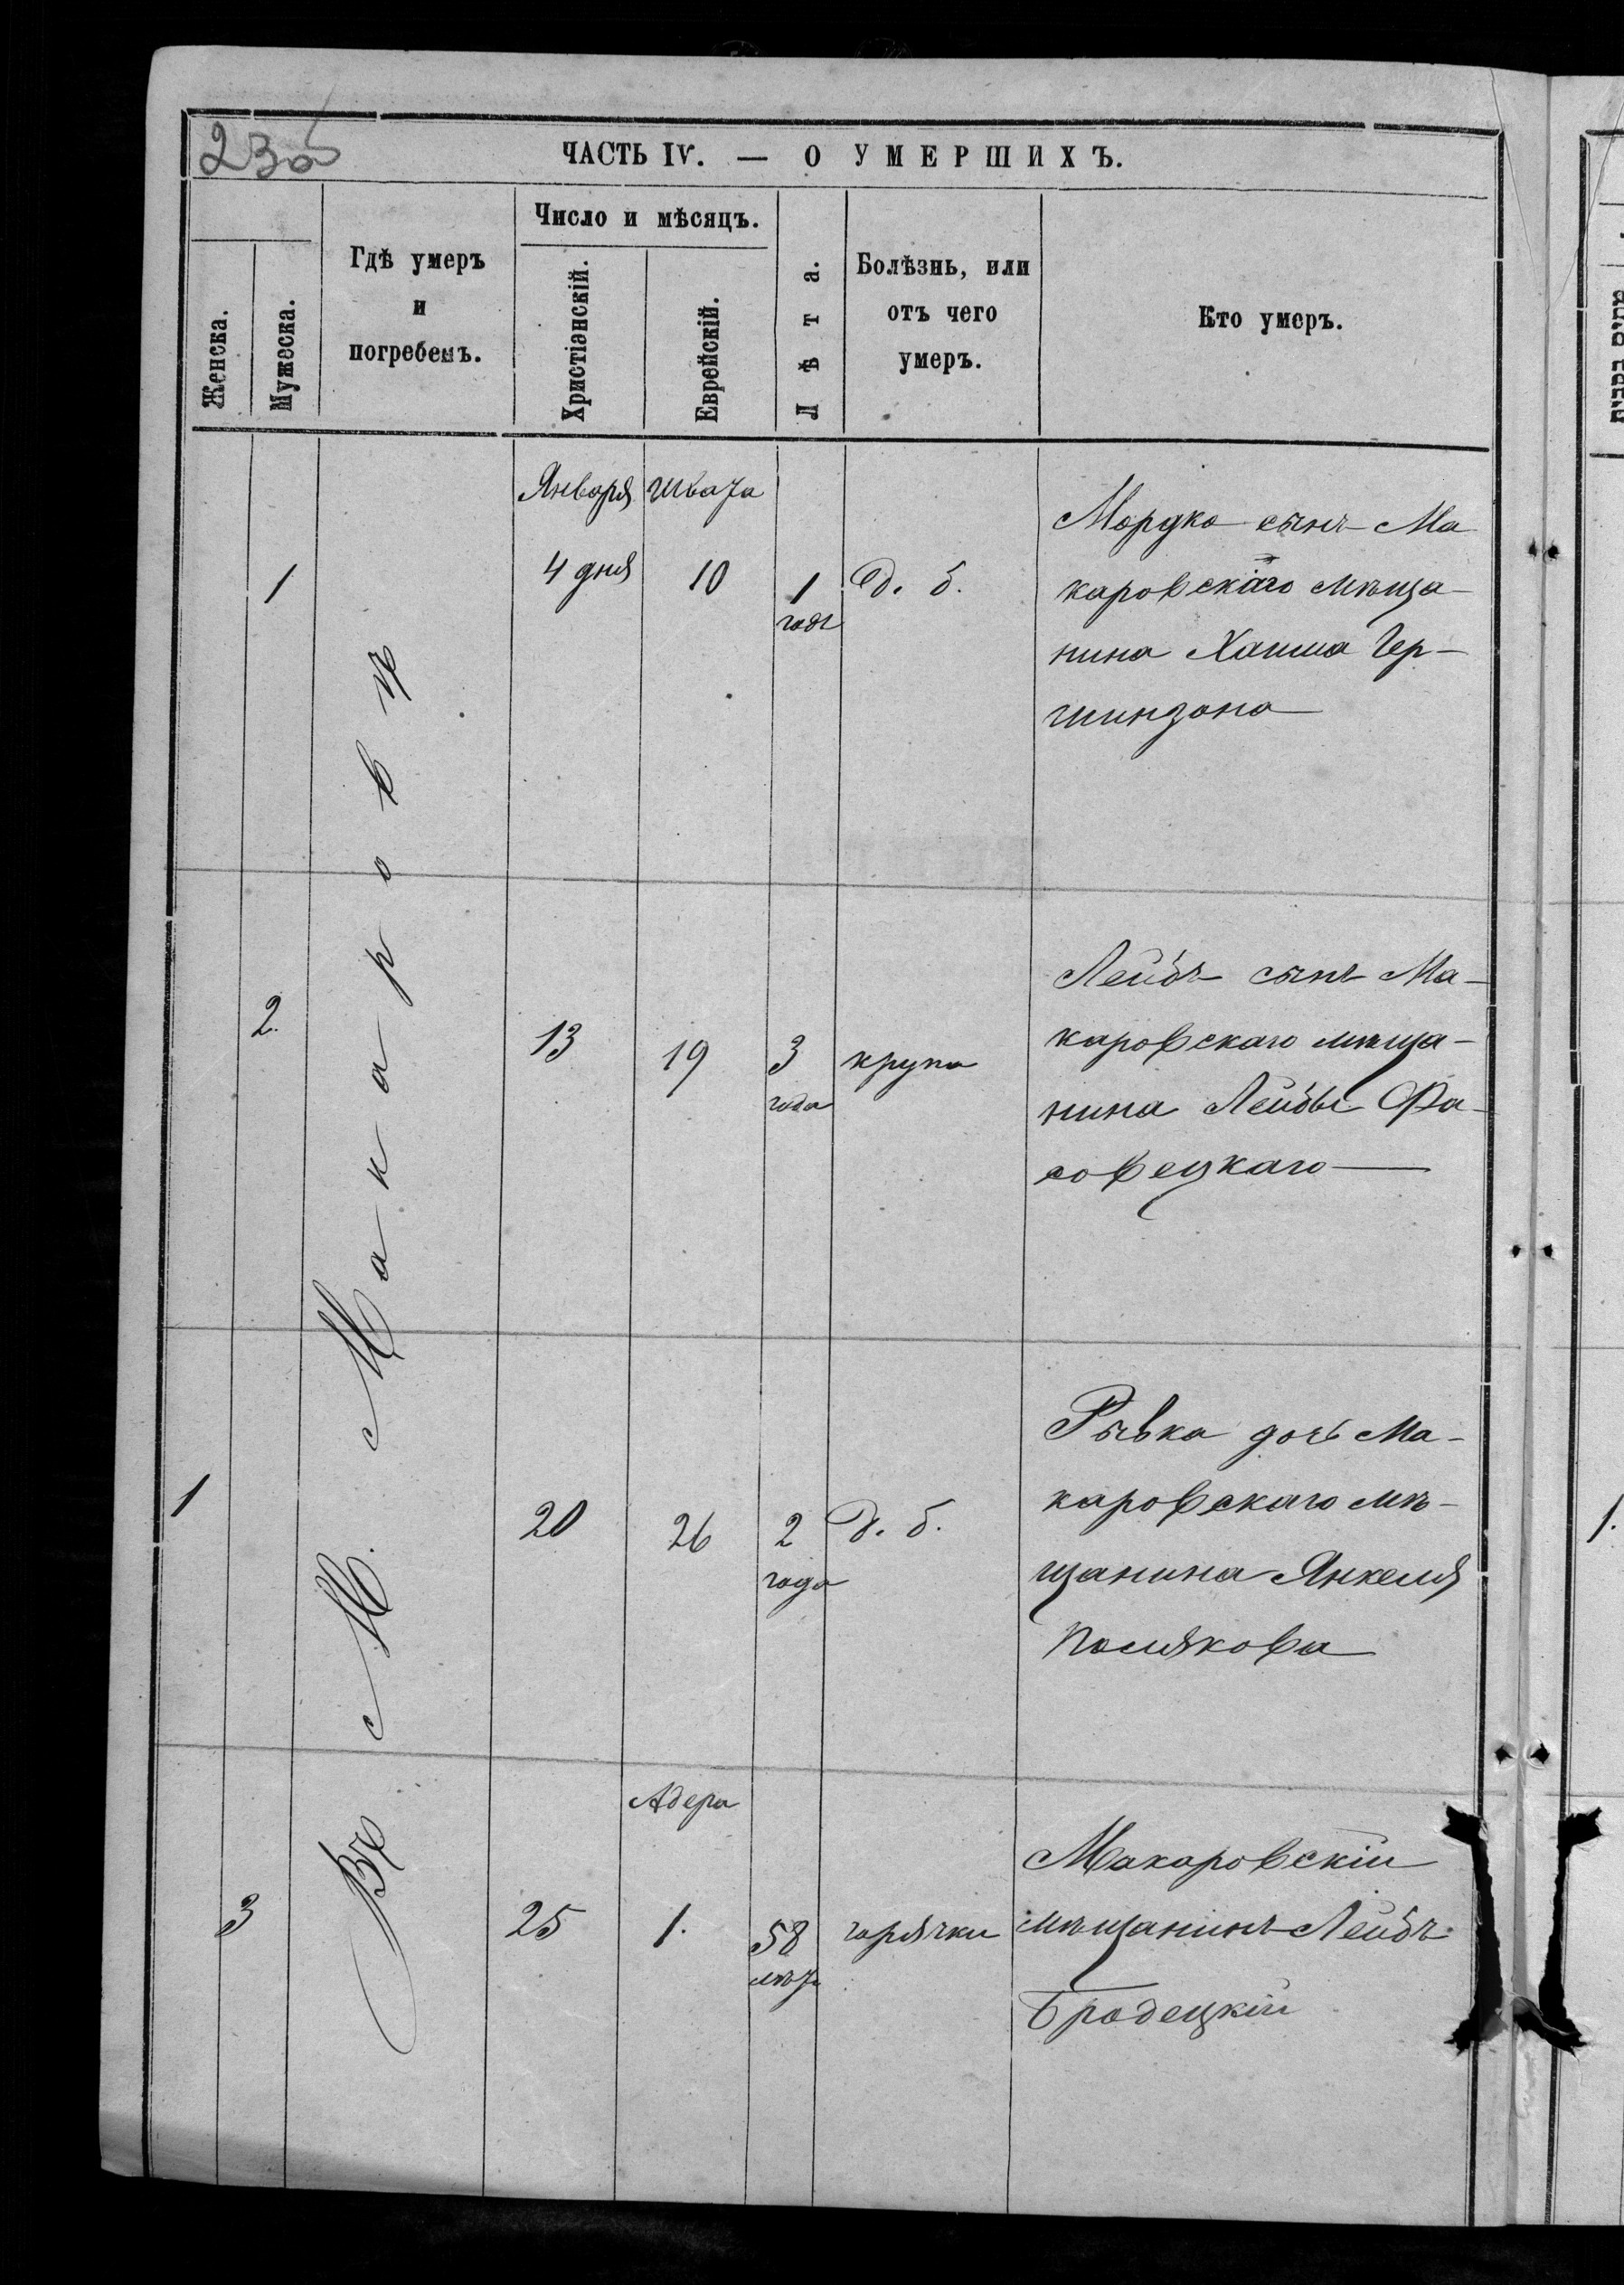 23об
ЧАСТЬ IV. — О УМЕРШИХЪ.
Женска.
Мужеска.
Гдѣ умеръ
и
погребенъ.
Число и мѣсяцъ.
Христіанскій.
Еврейскій.
Лѣта.
Болѣзнь, или
отъ чего
умеръ.
Кто умеръ.
Въ М. Макаровѣ
Января Швата
1 4 дня 10 1 годъ д. б.
Мордко сынъ Ма
каровскаго мѣща-
нина Хаима Гер-
шинзона
2. 13 19 3 года крупа
Лейбъ сынъ Ма-
каровскаго мѣща-
нина Лейбы Фа-
совецкаго
1 20 26 2 года д. б.
Рывка дочь Ма-
каровскаго мѣ-
щанина Янкеля
Полякова
Адера
3 25 1. 58 лѣтъ горячки
Макаровскій
мѣщанинъ Лейбъ
Бродецкій
1.